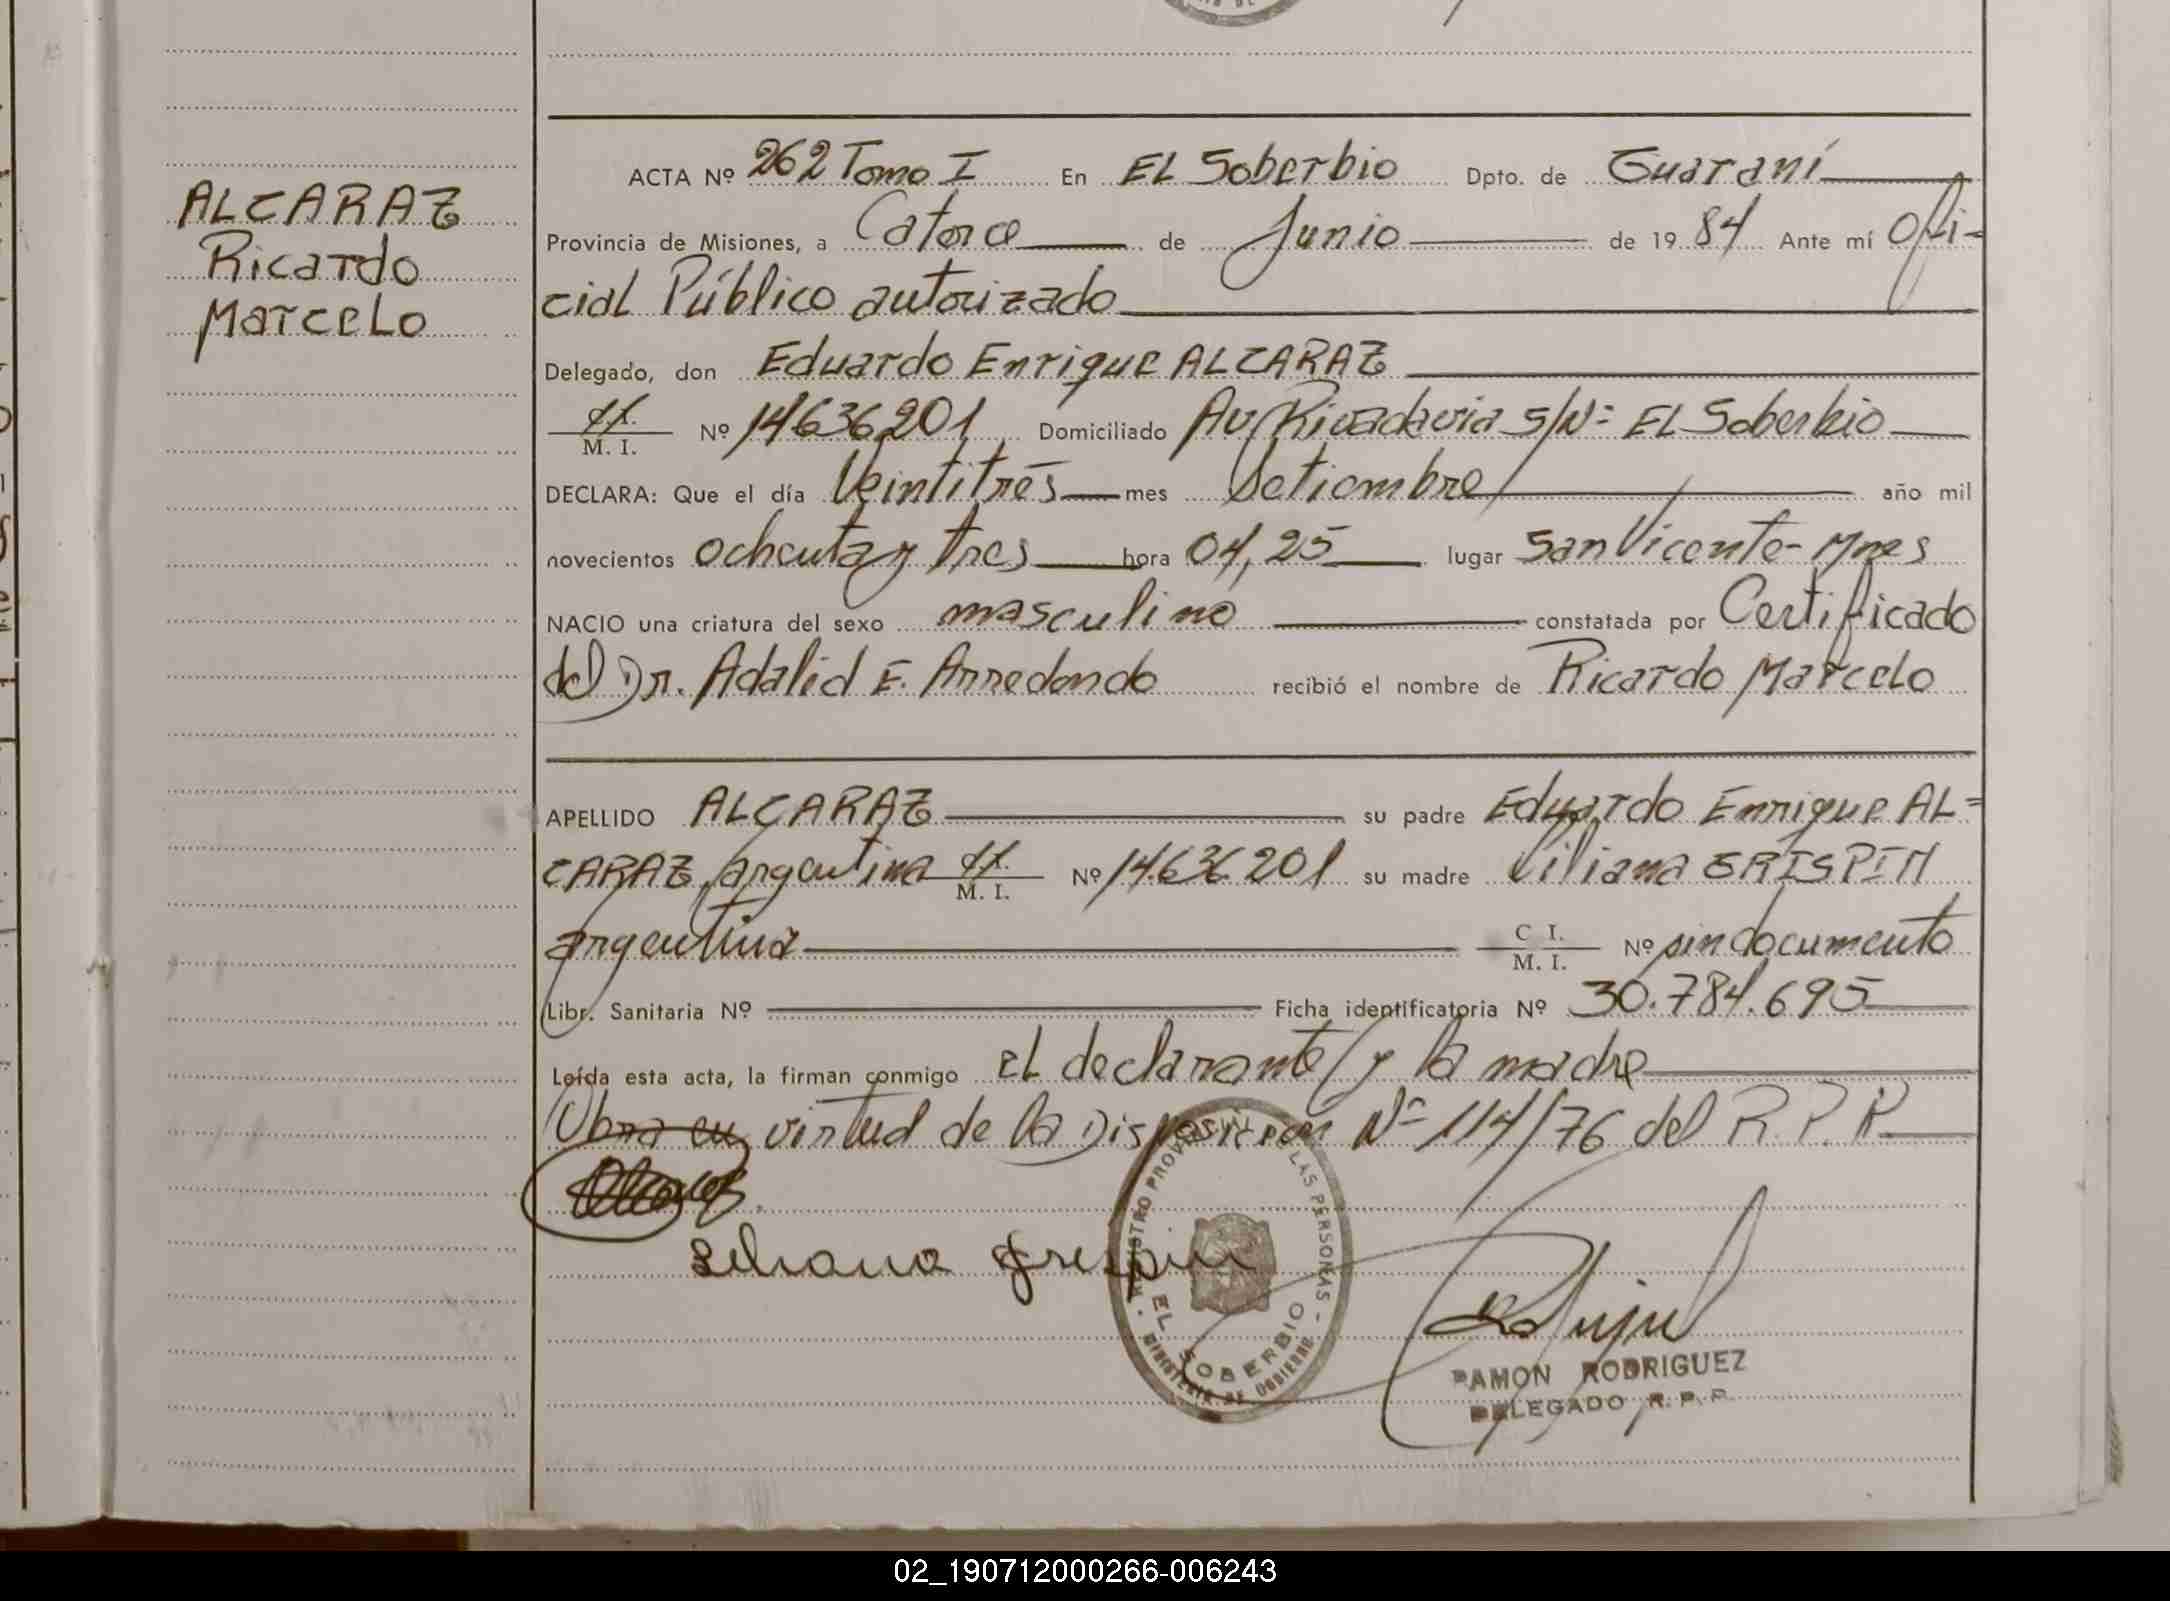 ALCARAZ
Ricardo
Marcelo
ACTA Nº 262 Tomo I En EL Soberbio Dpto. de Guaraní
Provincia de Misiones, a Catorce de Junio de 1984 Ante mí Ofi-
cial Público autorizado
Delegado, don Eduardo Enrique ALCARAZ
M. I. Nº 14636201 Domiciliado Av. Rivadavia S/Nº EL Soberbio
DECLARA: Que el día Veintitrés mes Setiembre año mil
novecientos ochenta y tres hora 04,25 lugar San Vicente - Mnes
NACIO una criatura del sexo masculino constatada por Certificado
del Dr. Adalid E. Arredondo recibió el nombre de Ricardo Marcelo
APELLIDO ALCARAZ su padre Eduardo Enrique AL=
CARAZ, argentina M. I. Nº 14.636.201 su madre Liliana GRISPIN
argentina C I. M. I. Nº sin documento
Libr. Sanitaria Nº Ficha identificatoria Nº 30.784.695
Leída esta acta, la firman conmigo EL declarante y la madre
Obra en virtud de la Disposición Nº 114/76 del R.P.P.
Liliana Grespin
REGISTRO PROVINCIAL DE LAS PERSONAS - EL SOBERBIO - MINISTERIO DE GOBIERNO
RAMON RODRIGUEZ
DELEGADO R. P. P.
02_190712000266-006243